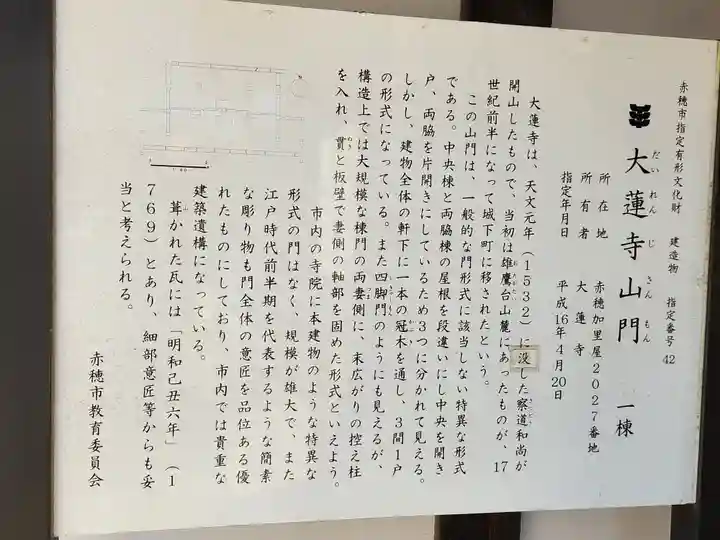 赤穂市指定有形文化財　建造物　指定番号42
大蓮寺山門　一棟
だいれんじさんもん
所在地　赤穂加里屋2027番地
所有者　大蓮寺
指定年月日　平成16年4月20日
大蓮寺は、天文元年（1532）に没した察道和尚が
開山したもので、当初は雄鷹台山麓にあったものが、17
世紀前半になって城下町に移されたという。
この山門は、一般的な門形式に該当しない特異な形式
である。中央棟と両脇棟の屋根を段違いにし中央を開き
戸、両脇を片開きにしているため3つに分かれて見える。
しかし、建物全体の軒下に一本の冠木を通し、3間1戸
の形式になっている。また四脚門のようにも見えるが、
構造上では大規模な棟門の両妻側に、末広がりの控え柱
を入れ、貫と板壁で妻側の軸部を固めた形式といえよう。
市内の寺院に本建物のような特異な
形式の門はなく、規模が雄大で、また
江戸時代前半期を代表するような簡素
な彫り物も門全体の意匠を品位ある優
れたものにしており、市内では貴重な
建築遺構になっている。
葺かれた瓦には「明和己丑六年」（1
769）とあり、細部意匠等からも妥
当と考えられる。
赤穂市教育委員会